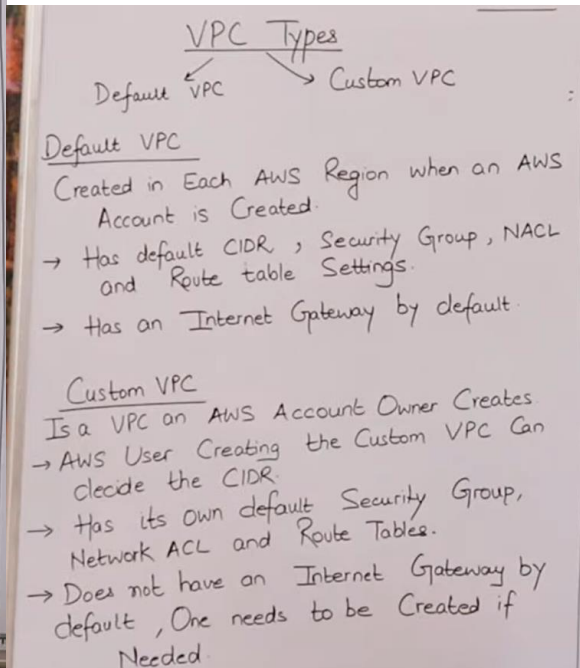 VPC Types
Default VPC
Custom VPC
:
Default VPC
Created in Each AWS Region when an AWS
Account is Created.
→ Has default CIDR, Security Group, NACL
and Route table Settings.
→ Has an Internet Gateway by default.
Custom VPC
Is a VPC an AWS Account Owner Creates
→ AWS User Creating the Custom VPC Can
decide the CIDR.
→ Has its own default Security Group,
Network ACL and Route Tables.
→ Does not have an Internet Gateway by
default, One needs to be Created if
Needed.